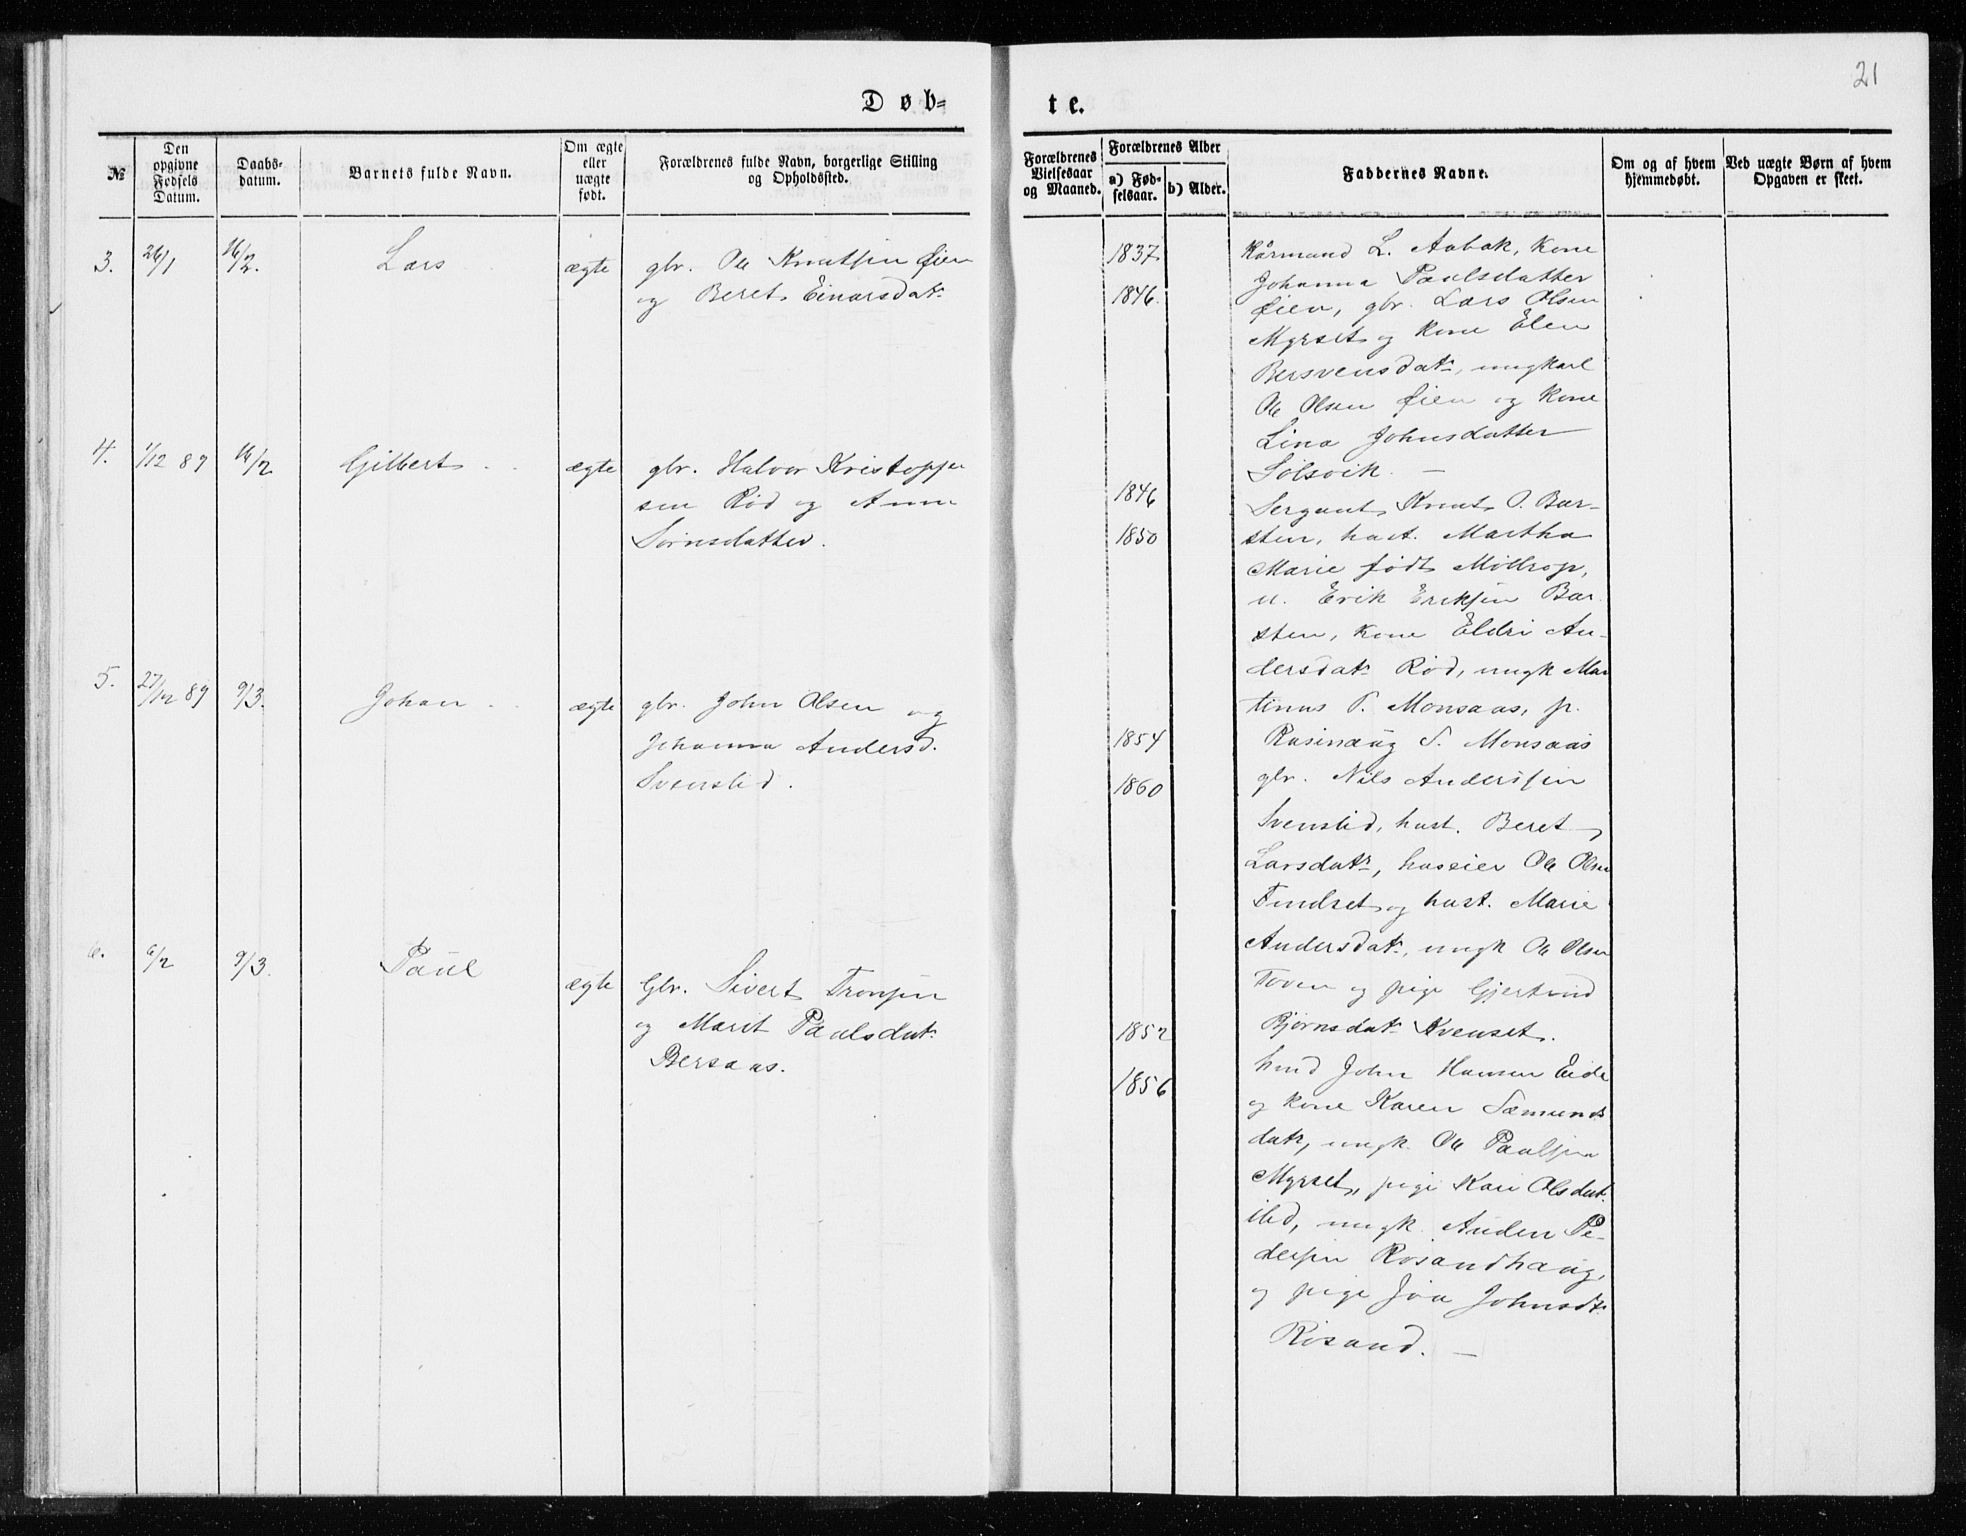 21
Døb=
te.
№
Den opgivne Fødsels Datum.
Daabs-datum.
Barnets fulde Navn.
Om ægte eller uægte født.
Forældrenes fulde Navn, borgerlige Stilling og Opholdssted.
Forældrenes Vielsesaar og Maaned.
Forældrenes Alder
a) Fødselsaar.
b) Alder.
Faddernes Navne.
Om og af hvem hjemmedøbt.
Ved uægte Børn af hvem Opgaven er skeet.
3. 26/1 16/2. Lars ægte
gbr. Ole Knutsen Øien
og Beret Einarsdat.
1837
1846.
Kårmand L. Aabak, kone
Johanna Paulsdatter
Øien, gbr. Lars Olsen
Myrset og kone Elen
Bersvensdatr, ungkarl
Ole Olsen Øien og kone
Lina Johnsdatter
Solsvik. —
4. 1/12 89 16/2 Gilbert ægte
gbr. Halvor Kristoffer
sen Rød og Anne
Sörnsdatter.
1846
1850
Sergant Knut O. Bar-
sten, hust. Martha
Marie født Möllrop,
u. Erik Eriksen Bar
sten, kone Eldri An-
dersdatr Rød, ungk Mar
tinus P. Monsaas, p.
Rasinaug S. Monsaas
5. 27/12 89 9/3. Johan ægte
gbr. John Olsen og
Johanna Andersd.
Svenslid.
1854
1860
gbr. Nils Andersen
Svenslid, hust. Beret
Larsdatr, huseier Ole Olsen
Tindset og hust. Marie
Andersdatr, ungk Ole Olsen
Toven og pige Gjertrud
Bjørnsdatr Kvenset.
6. 6/2 9/3. Paul ægte
Gbr. Sivert Tronsen
og Marit Paalsdatr
Bersaas.
1852
1856
hmd John Hansen Eide
og kone Karen Sæmunds
datr, ungk. Ole Paulsen
Myrset, pige Kari Olsdat.
ibd, ungk. Auden Pe-
dersen Rosandhaug,
og pige Joa Johnsdtr
Rosand. —